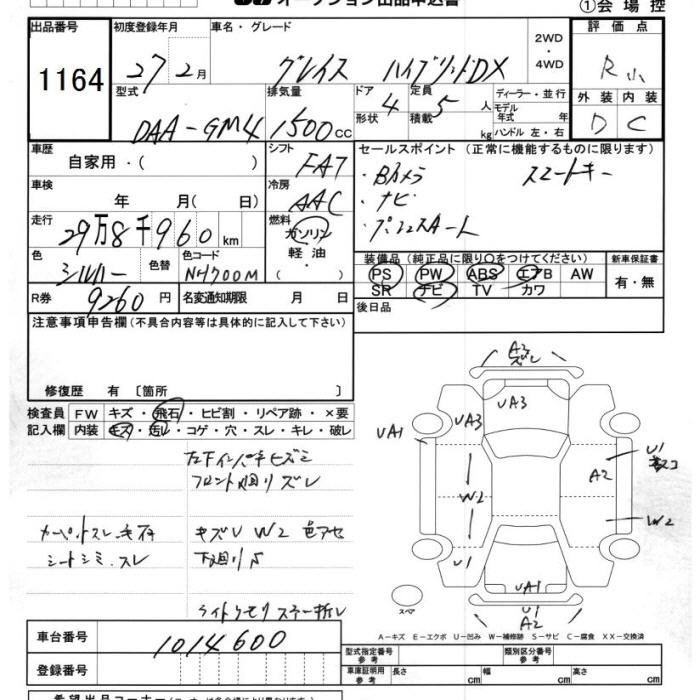 オークション出品申込書
①会場控
出品番号
1164
初度登録年月
27 2月
車名・グレード
グレイス ハイブリッドDX
2WD
・
4WD
評価点
R
外装 内装
D C
型式
DAA-GM4
排気量
1500cc
ドア
4
形状
定員
5人
積載
kg
ディーラー・並行
モデル
年式 年
ハンドル 左・右
車歴
自家用・( )
シフト
FAT
セールスポイント (正常に機能するものに限ります)
・Bカメラ スマートキー
・ナビ
・プッシュスタート
車検
年 月( 日)
冷房
AAC
走行
29万8千960km
燃料
ガソリン
軽油
・( )
色
シルバー
色替
色コード
NH700M
装備品 (純正品に限り○をつけてください)
PS PW ABS エアB AW
SR ナビ TV カワ
新車保証書
有・無
R券
9260円
名変通知期限 月 日
後日品
注意事項申告欄 (不具合内容等は具体的に記入して下さい)
修復歴 有 〔箇所 〕
検査員
記入欄
FW キズ・飛石・ヒビ割・リペア跡・×要
内装 キズ・汚レ・コゲ・穴・スレ・キレ・破レ
左下インパネヒズミ
フロント廻リズレ
カーペットスレ
シートシミ、スレ
キズU W2 色アセ
下廻リS
ライトクモリ ステー折レ
A2
ズレ
UA3
UA3
UA1
W2
U1
A2
U1
W2
UA1
U1
A2
スペア
A-キズ E-エクボ U-凹み W-補修跡 S-サビ C-腐食 XX-交換済
車台番号
1014600
登録番号
型式指定番号
参考
類別区分番号
参考
車庫証明用
参考
長さ cm
幅 cm
高さ cm
希望出品コーナー